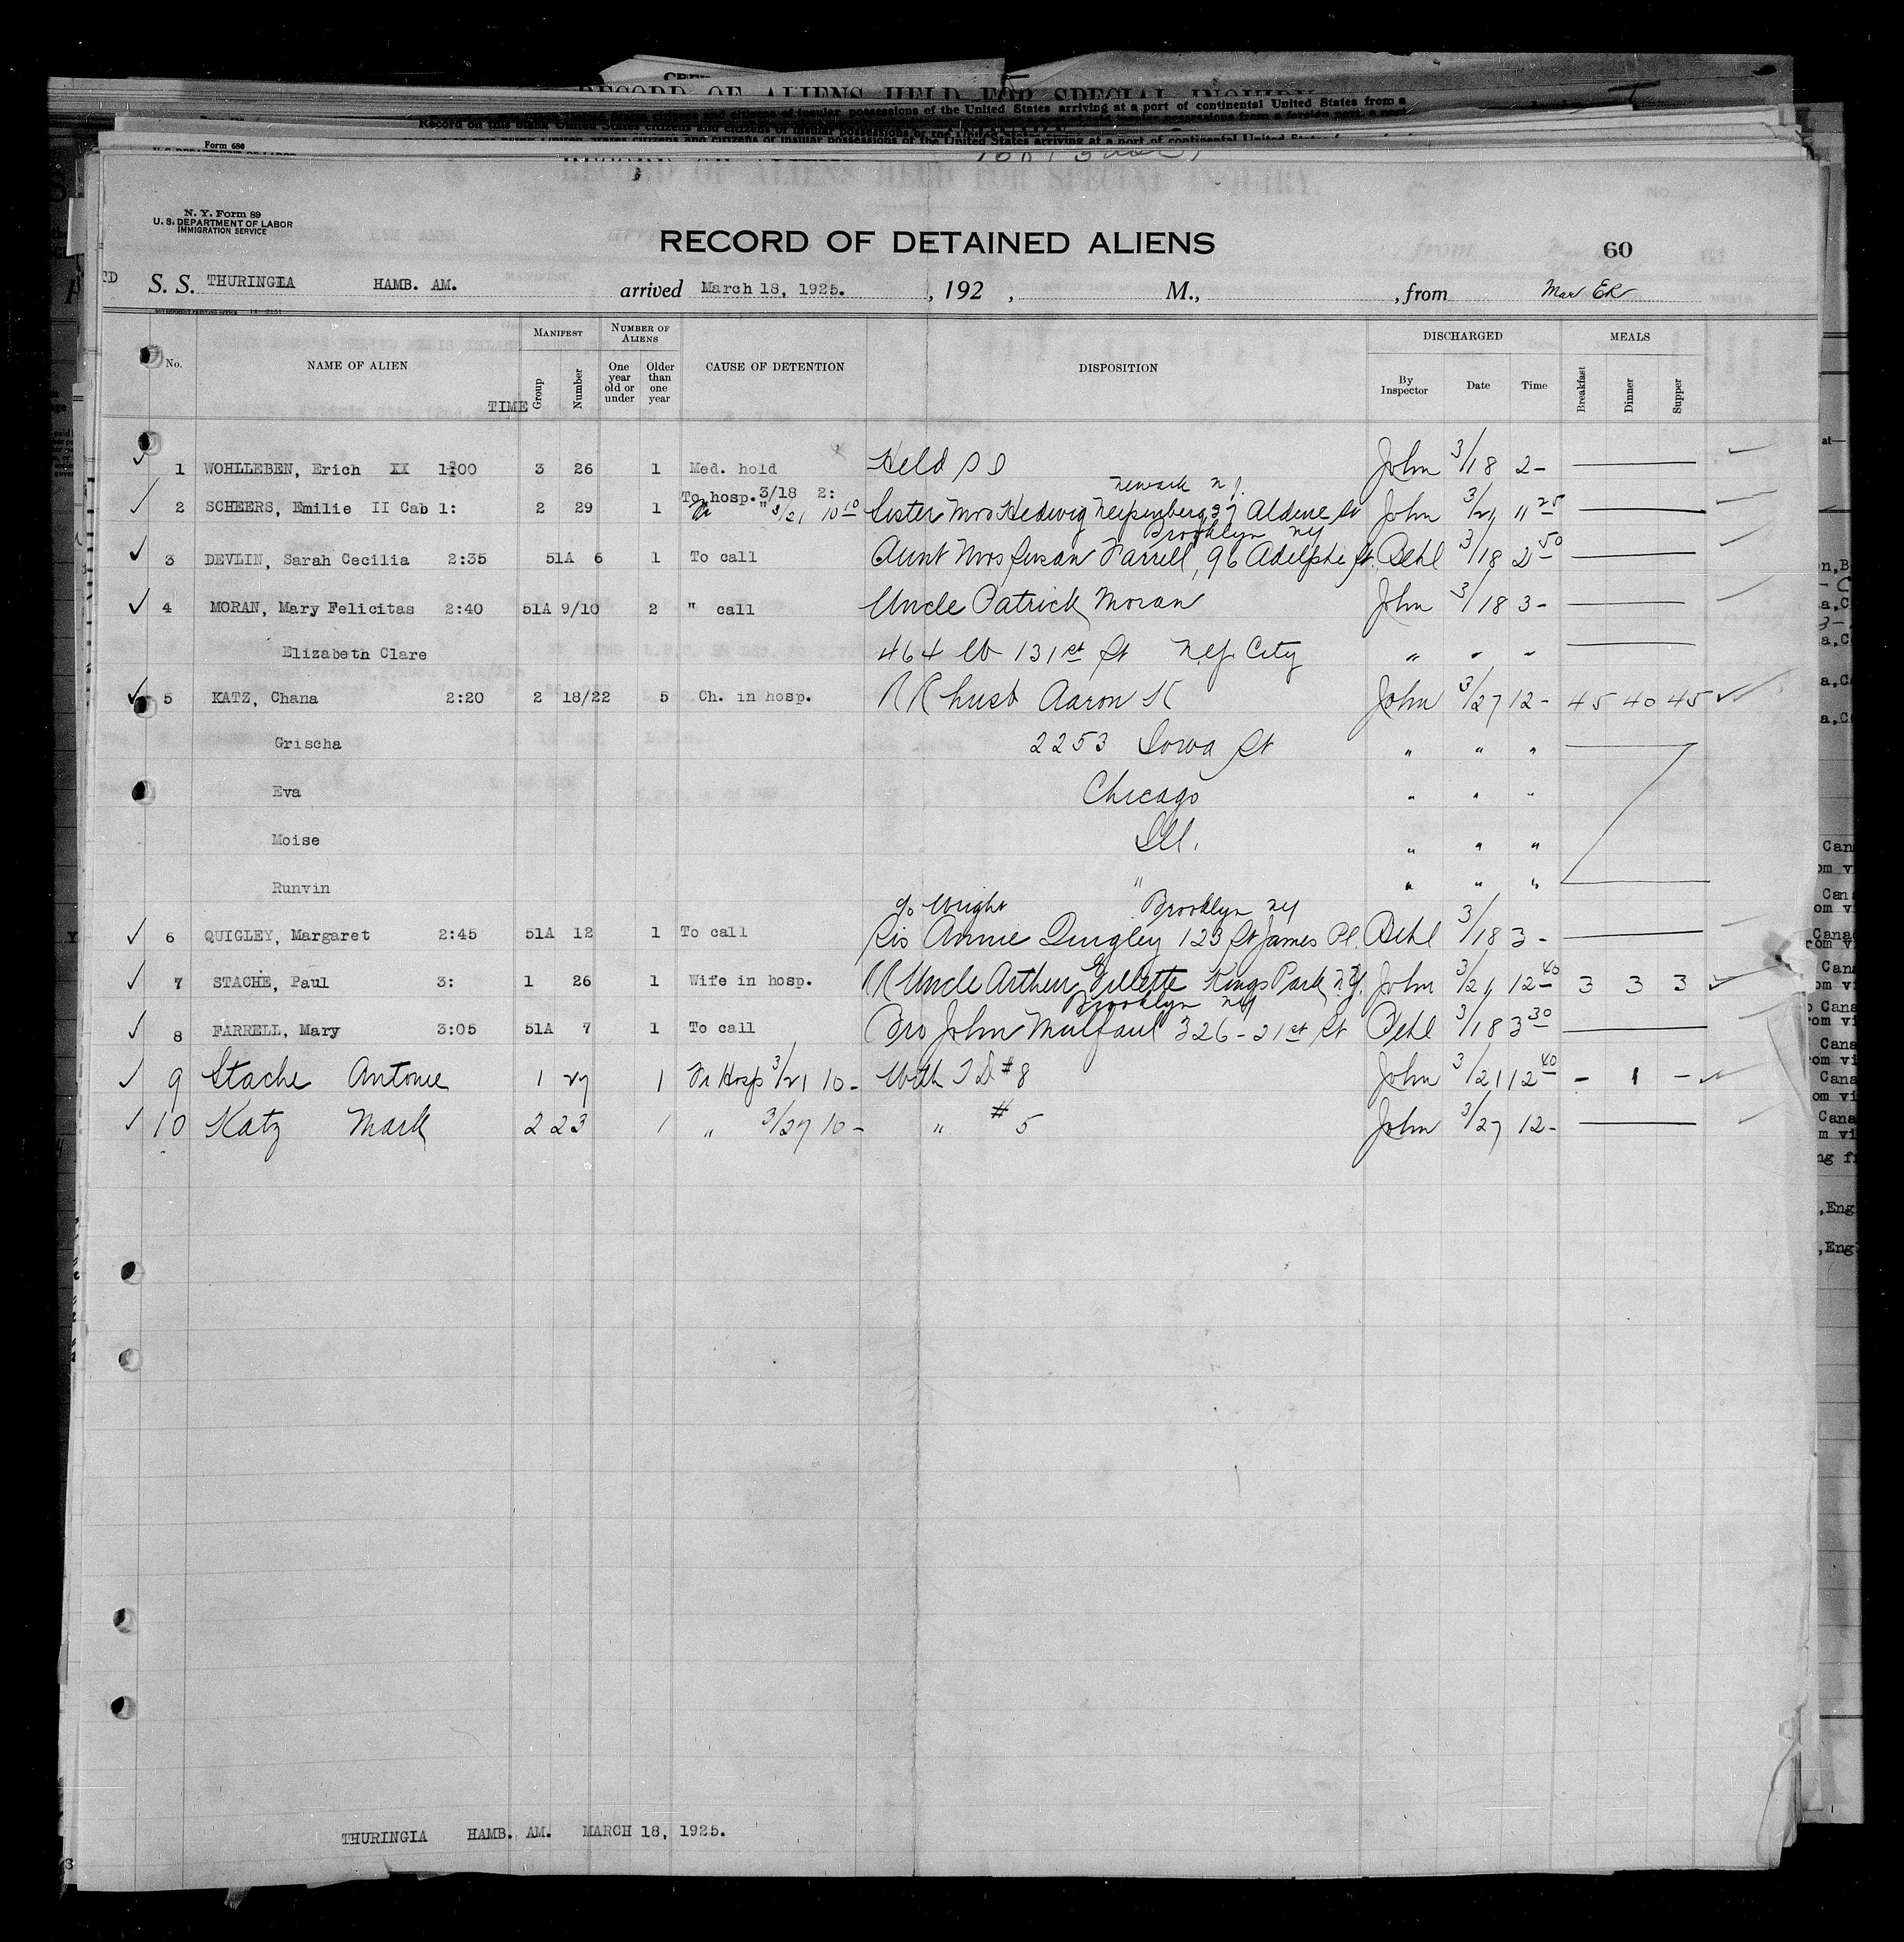 RECORD OF ALIENS HELD FOR SPECIAL INQUIRY
possessions of the United States arriving at a port of continental United States from a
Form 680
N. Y. Form 89
U. S. DEPARTMENT OF LABOR
IMMIGRATION SERVICE
RECORD OF DETAINED ALIENS
60
S. S. THURINGIA HAMB. AM. arrived March 18, 1925. , 192 , M., , from
No. NAME OF ALIEN TIME MANIFEST Group Number NUMBER OF ALIENS One year old or under Older than one year CAUSE OF DETENTION DISPOSITION DISCHARGED By Inspector Date Time MEALS Breakfast Dinner Supper
1 WOHLLEBEN, Erich XX 3 26 1 Med. hold Held S I John 3/18 2-
Newark N.J.
2 SCHEERS, Emilie II Cab 1: 2 29 1 To hosp. 3/18 2: Fr " 3/21 10 10 Sister Mrs Hedwig 37 Aldine St John 3/21 11 25
Brooklyn NY
3 DEVLIN, Sarah Cecilia 2:35 51A 6 1 To call Aunt Mrs Susan Farrell, 96 Adelphi St. Behl 3/18 2 50
4 MORAN, Mary Felicitas 2:40 51A 9/10 2 " call Uncle Patrick Moran John 3/18 3-
Elizabeth Clare 464 W 131st St N.Y. City " " "
5 KATZ, Chana 2:20 2 18/22 5 Ch. in hosp. RR husb Aaron K John 3/27 12- 45 40 45
Grischa 2253 Iowa St " " "
Eva Chicago " " "
Moise Ill. " " "
Runvin " " " "
c/o Wright Brooklyn NY
6 QUIGLEY, Margaret 2:45 51A 12 1 To call Sis Annie Quigley 123 St James Pl. Behl 3/18 3-
7 STACHE, Paul 3: 1 26 1 Wife in hosp. RR Uncle Arthur Gillette Kings Park N.Y. John 3/21 12 40 3 3 3
Brooklyn NY
8 FARRELL, Mary 3:05 51A 7 1 To call Bro John Mulfaul 326-21st St Behl 3/18 3 30
9 Stache Antonie 1 27 1 Fr Hosp 3/21 10- With T D #8 John 3/21 12 40 - 1 -
10 Katz Mark 2 23 1 " 3/27 10- " #5 John 3/27 12-
THURINGIA HAMB. AM. MARCH 18, 1925.